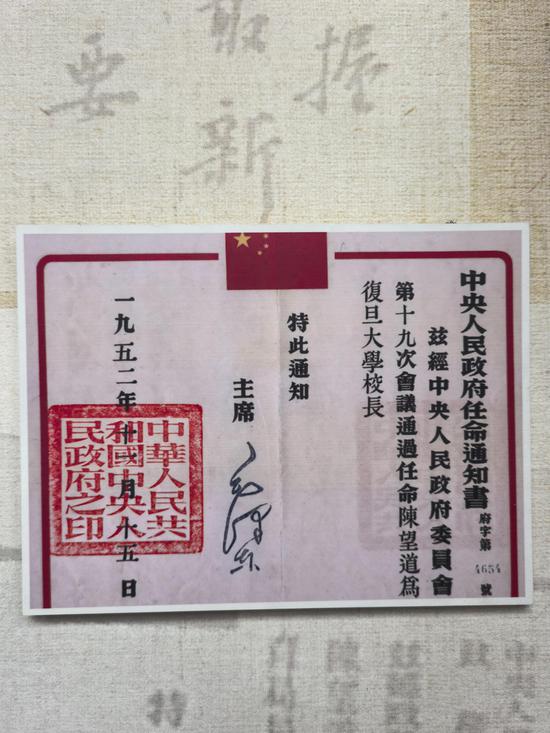 中央人民政府任命通知書
府字第4654號
兹經中央人民政府委員會
第十九次會議通過任命陳望道爲
復旦大學校長
特此通知
主席
毛澤東
一九五二年十一月十五日
中華人民共
和國中央人
民政府之印
取
握
新
要
特